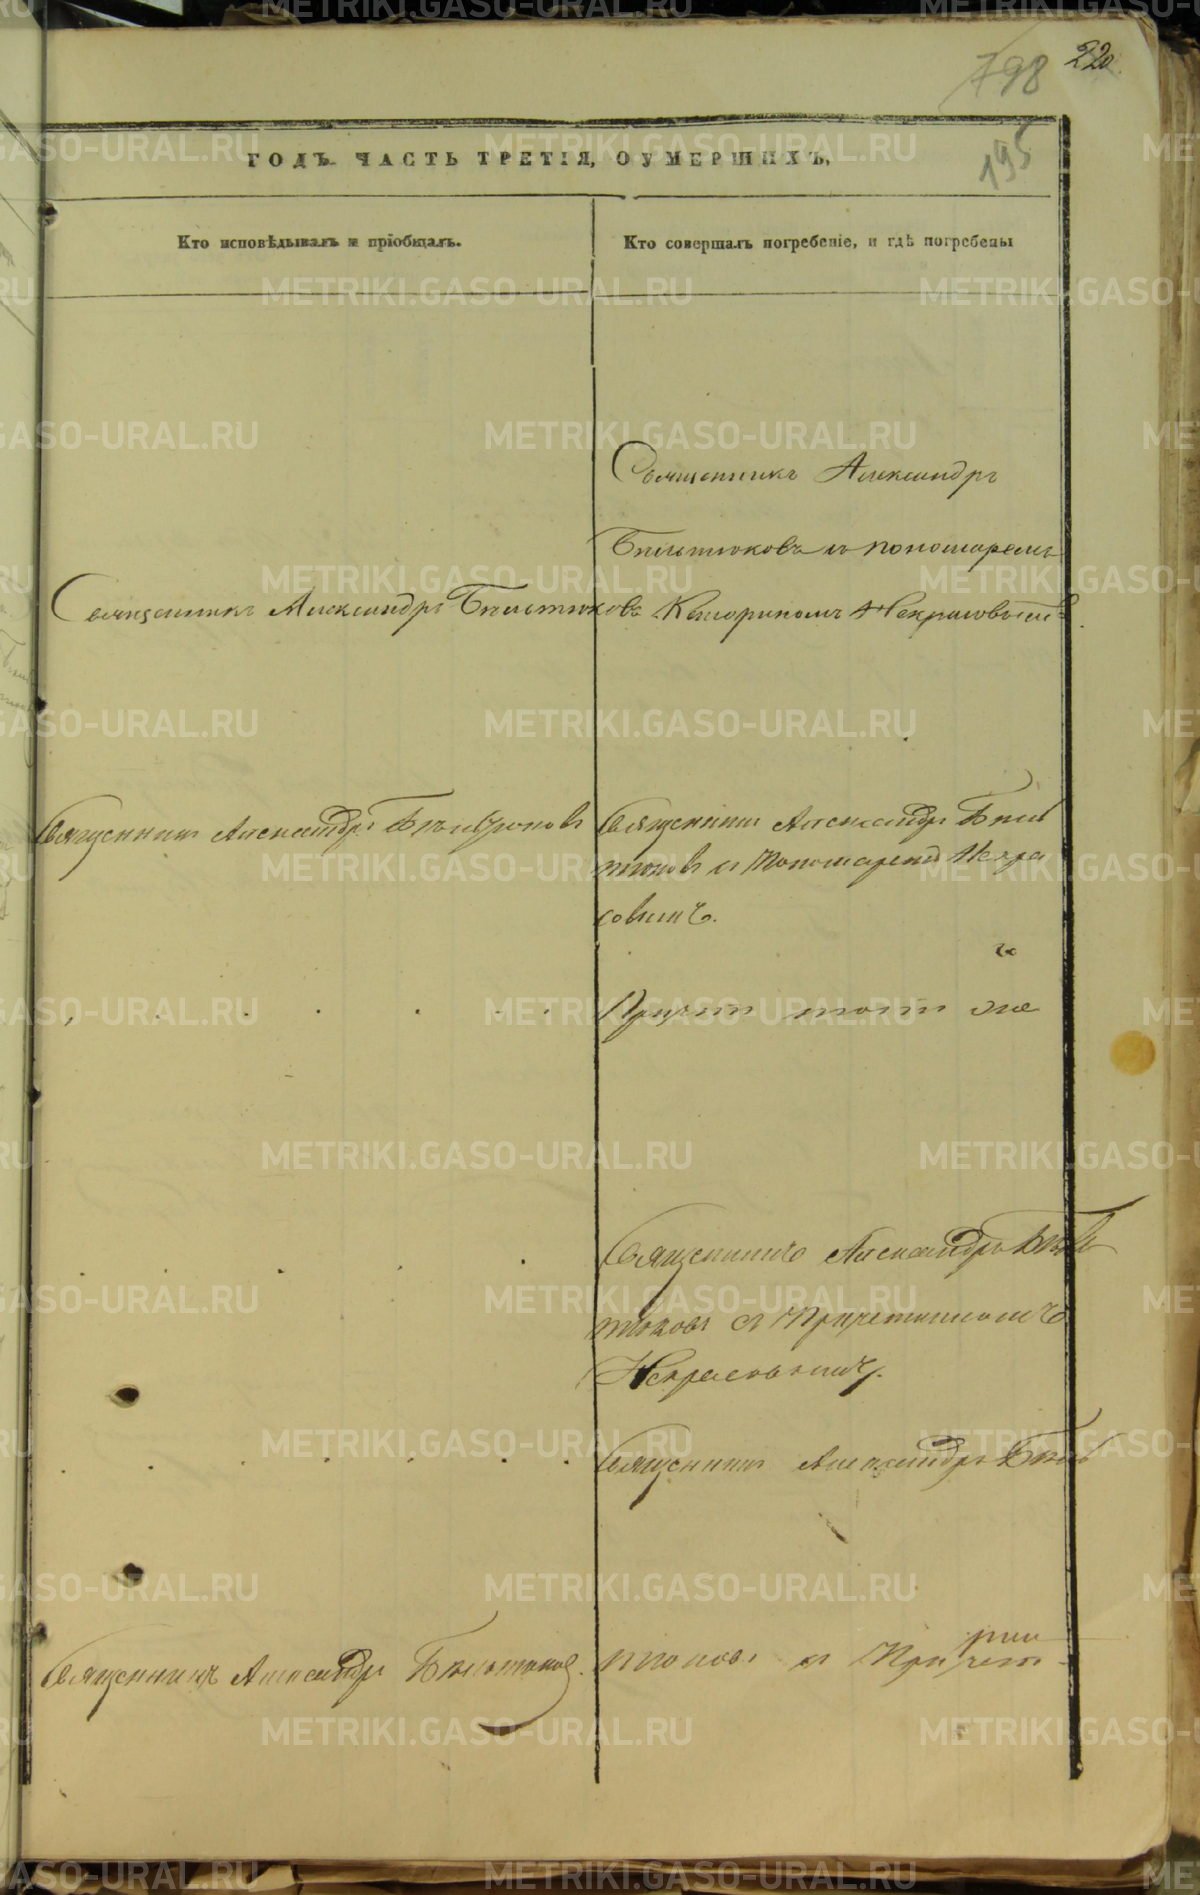 798 220
195
ГОДЪ ЧАСТЬ ТРЕТІЯ, О УМЕРШИХЪ,
Кто исповѣдывалъ и пріобщалъ.
Кто совершалъ погребеніе, и гдѣ погребены
Священникъ Александръ
Бѣльтюковъ съ пономаремъ
Священникъ Александръ Бѣльтюковъ
Некрасовымъ
Священникъ Александръ Бѣльтюковъ
Священникъ Александръ Бѣль
тюковъ съ Пономаремъ Некра
совымъ.
Причтъ тотъ же
Священникъ Александръ Бѣль
тюковъ съ Причетникомъ
Некрасовымъ.
Священникъ Александръ Бѣль
Священникъ Александръ Бѣльтюковъ.
тюковъ съ Причет
METRIKI.GASO-URAL.RU